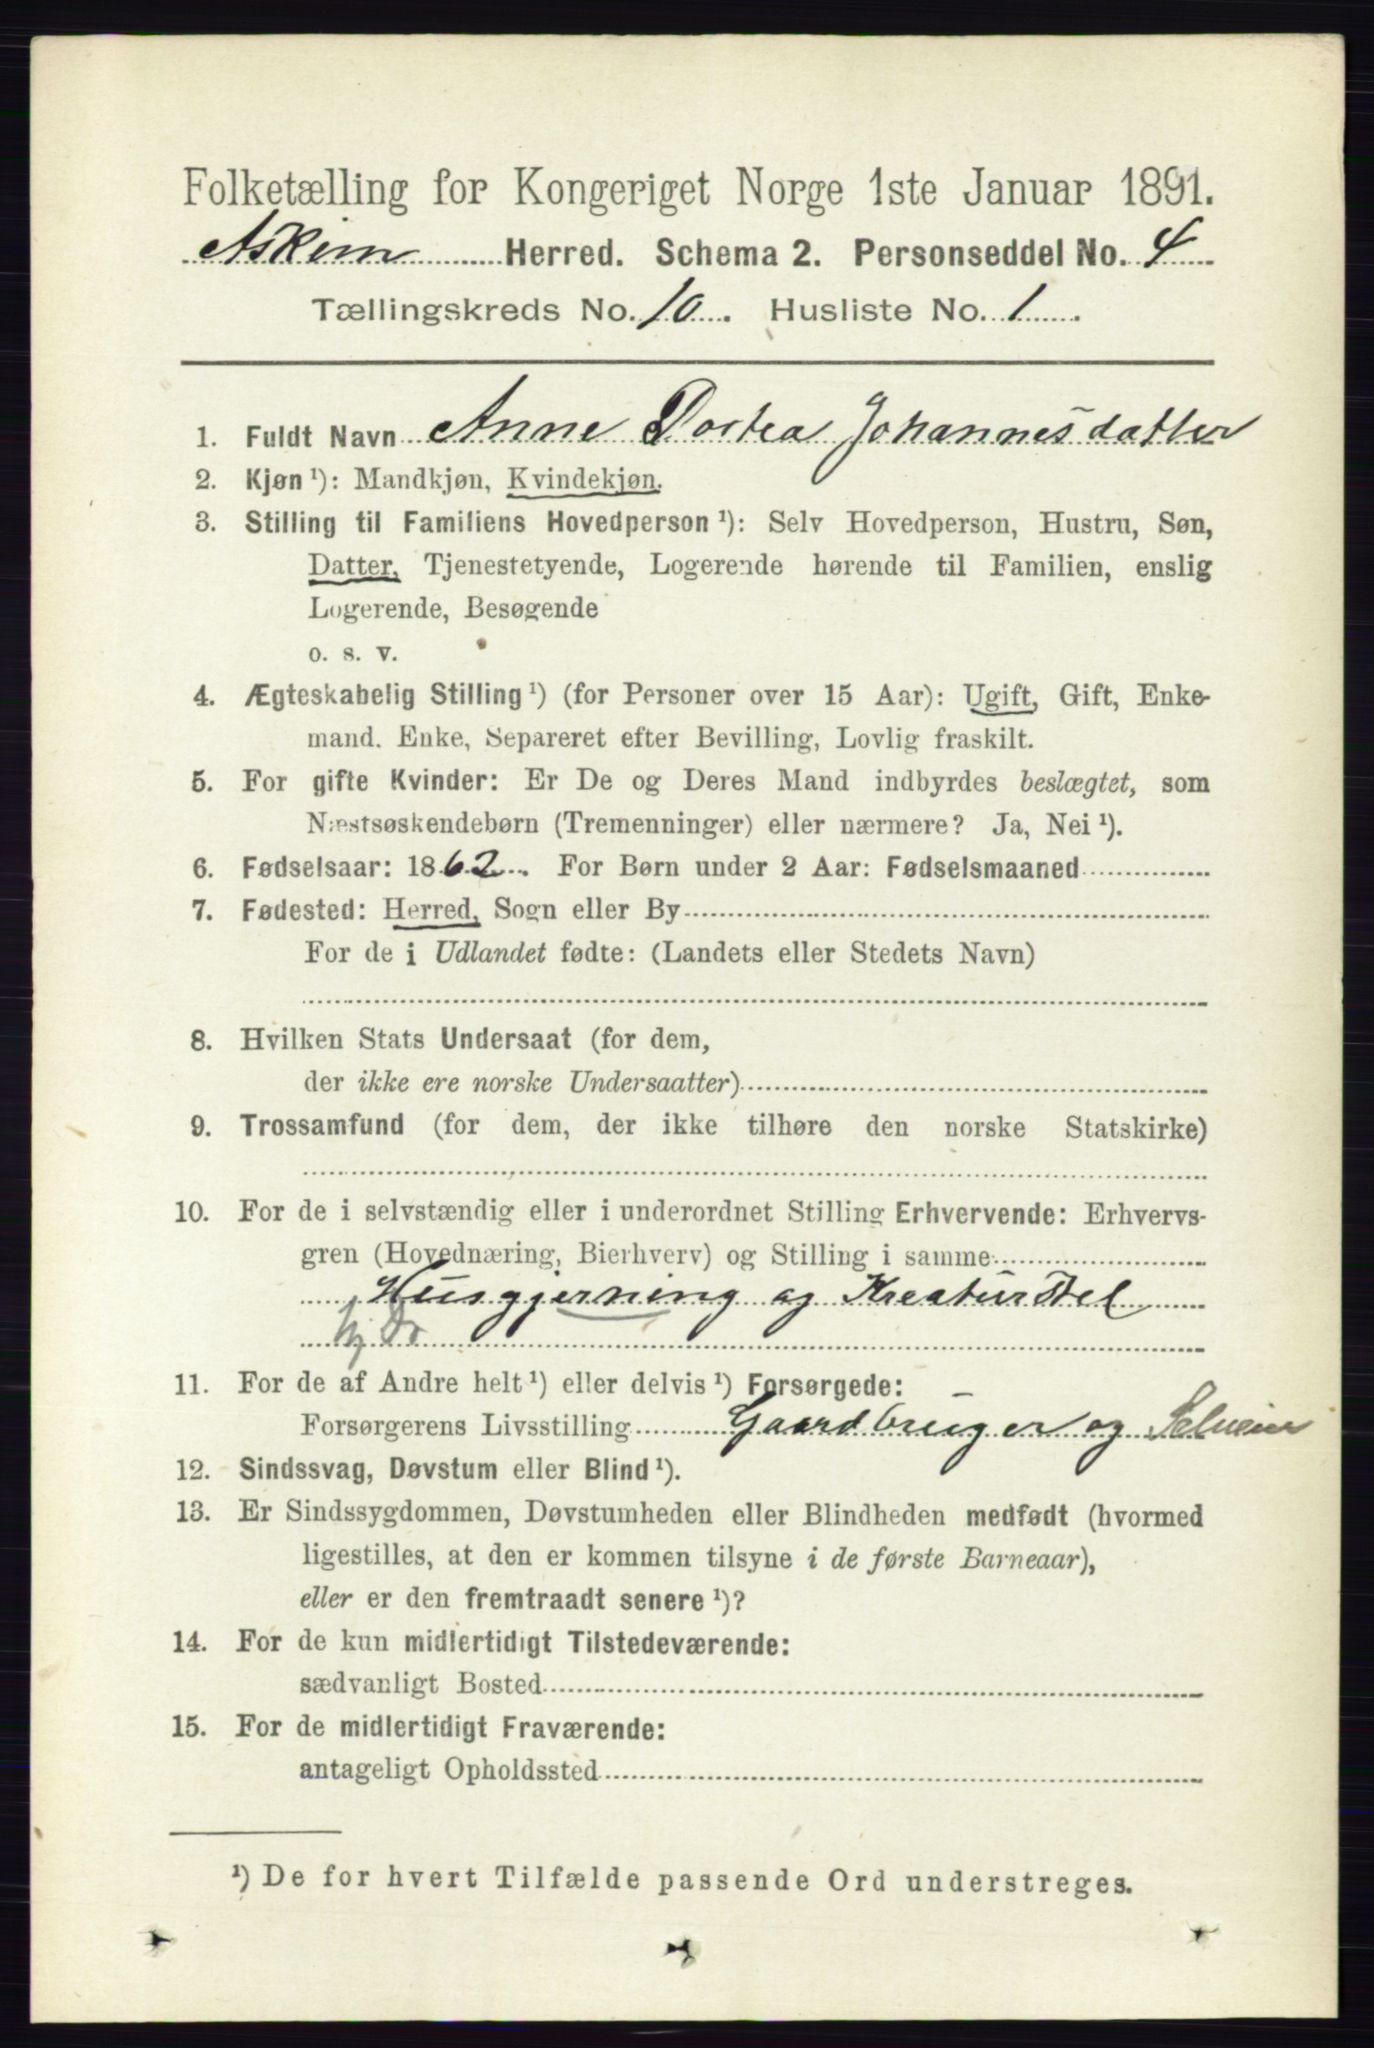 Folketælling for Kongeriget Norge 1ste Januar 1891.
Askim Herred. Schema 2. Personseddel No. 4
Tællingskreds No. 10. Husliste No. 1.
1. Fuldt Navn Anne Dortea Johannesdatter
2. Kjøn ¹): Mandkjøn, Kvindekjøn.
3. Stilling til Familiens Hovedperson ¹): Selv Hovedperson, Hustru, Søn,
Datter, Tjenestetyende, Logerende hørende til Familien, enslig
Logerende, Besøgende
o. s. v.
4. Ægteskabelig Stilling ¹) (for Personer over 15 Aar): Ugift, Gift, Enke-
mand. Enke, Separeret efter Bevilling, Lovlig fraskilt.
5. For gifte Kvinder: Er De og Deres Mand indbyrdes beslægtet, som
Næstsøskendebørn (Tremenninger) eller nærmere? Ja, Nei ¹).
6. Fødselsaar: 1862. For Børn under 2 Aar: Fødselsmaaned
7. Fødested: Herred, Sogn eller By
For de i Udlandet fødte: (Landets eller Stedets Navn)
8. Hvilken Stats Undersaat (for dem,
der ikke ere norske Undersaatter)
9. Trossamfund (for dem, der ikke tilhøre den norske Statskirke)
10. For de i selvstændig eller i underordnet Stilling Erhvervende: Erhvervs-
gren (Hovednæring, Bierhverv) og Stilling i samme
Husgjerning og Kreaturstel
11. For de af Andre helt ¹) eller delvis ¹) Forsørgede:
Forsørgerens Livsstilling Gaardbruger og Selveier
12. Sindssvag, Døvstum eller Blind ¹).
13. Er Sindssygdommen, Døvstumheden eller Blindheden medfødt (hvormed
ligestilles, at den er kommen tilsyne i de første Barneaar),
eller er den fremtraadt senere ¹)?
14. For de kun midlertidigt Tilstedeværende:
sædvanligt Bosted
15. For de midlertidigt Fraværende:
antageligt Opholdssted
¹) De for hvert Tilfælde passende Ord understreges.